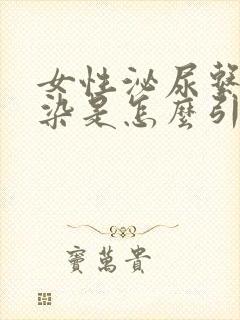 女性泌尿繫
染是怎麼引
寶萬貴